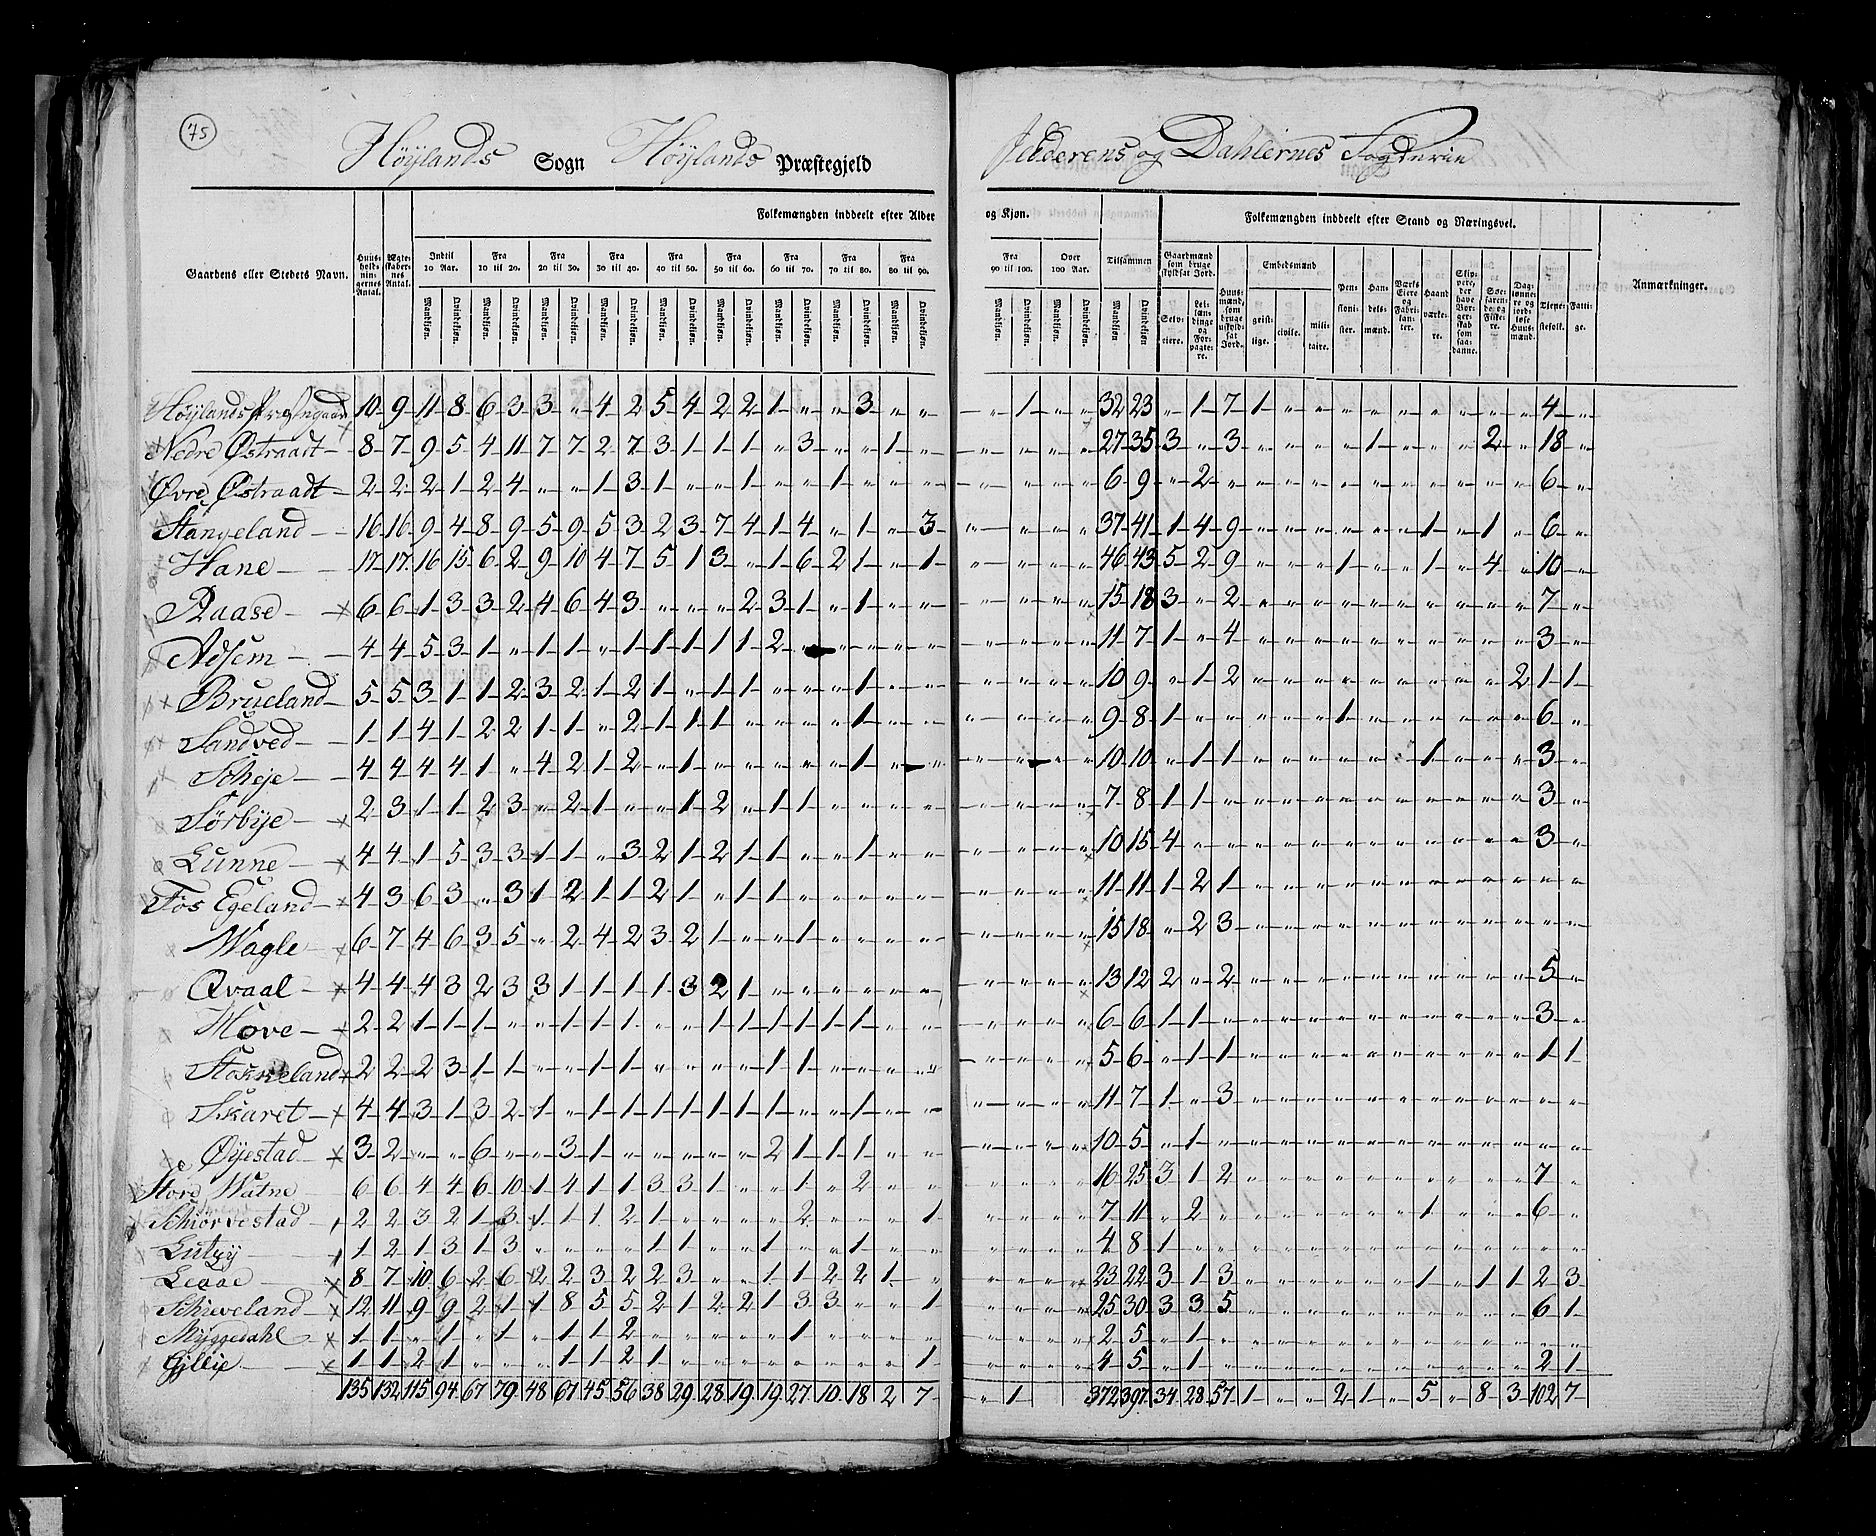 75
Höylands Sogn Höylands Præstegjeld
Jædderens og Dahlernes Fogderie
Folkemængden inddeelt efter Alder og Kjøn.
Folkemængden inddeelt efter Stand og Næringsvei.
Gaardens eller Stedets Navn.
Huusholdningernes Antal.
Ægteskabernes Antal.
Indtil 10 Aar.
Fra 10 til 20.
Fra 20 til 30.
Fra 30 til 40.
Fra 40 til 50.
Fra 50 til 60.
Fra 60 til 70.
Fra 70 til 80.
Fra 80 til 90.
Fra 90 til 100.
Over 100 Aar.
Tilsammen
Mandkjøn. Qvindekjøn.
Gaardmænd som bruge skyldsat Jord.
Selveiere.
Leilændinge og Forpagtere.
Huusmænd, som bruge uskyldsat Jord.
Embedsmænd
geistlige. civile. militaire.
Pensionister.
Handelsmænd.
Værks Eiere og Fabrikanter.
Haandværkere.
Skippere, der have Borgerskab som saadanne.
Søefarende og Fiskere.
Daglønnere og jordløse Huusmænd.
Tjenestefolk.
Fattige.
Anmærkninger.
Höylands Præstegaard 10 9 11 8 6 3 3 " 4 2 5 4 2 2 1 " " 3 " " " 1 " " 32 23 " 1 7 1 " " " " " " " " " 4 "
Nedre Østraadt 8 7 9 5 4 11 7 7 2 7 3 1 1 1 " 3 " " 1 " " " " " 27 35 3 " 3 " " " " 1 " " " 2 " 18 "
Øvre Østraadt 2 2 2 1 2 4 " " 1 3 1 " " 1 " " 1 " " " " " " " 6 9 " 2 " " " " " " " " " " " 6 "
Stangeland 16 16 9 4 8 9 5 9 5 3 2 3 7 4 1 4 " 1 " 3 " " " " 37 41 1 4 9 " " " " " " 1 " 1 " 6 "
Hane 17 17 16 15 6 2 9 10 4 7 5 1 3 " 1 6 2 1 " 1 " " " " 46 43 5 2 9 " " " 1 " " 1 " 4 " 10 "
Aaase 6 6 1 3 3 2 4 6 4 3 " " " 2 3 1 " 1 " " " " " " 15 18 3 " 2 " " " " " " " " " " 7 "
Adsem 4 4 5 3 1 " 1 1 " 1 1 1 1 1 2 " " " " " " " " " 11 7 1 " 4 " " " " " " " " " " 3 "
Brueland 5 5 3 1 1 2 3 2 1 2 1 " 1 1 " " " 1 " " " " " " 10 9 " 1 2 " " " " " " " " " 2 1 1
Sandved 1 1 4 1 2 2 1 1 " 2 1 1 1 " " " " 1 " " " " " " 9 8 1 " " " " " 1 " " " " " " 6 "
Scheje 4 4 4 4 1 " 4 2 1 2 " 1 " " " " " 1 " " " " " " 10 10 " 1 1 " " " " " " 1 " " " 3 "
Sörbÿe 2 3 1 1 2 3 " 2 1 " " 1 2 " 1 1 " " " " " " " " 7 8 1 1 " " " " " " " " " " " 3 "
Lunne 4 4 1 5 3 3 1 1 " 3 2 1 2 1 1 " " 1 " " " " " " 10 15 4 " " " " " " " " " " " " 3 "
Fos Egeland 4 3 6 3 " 3 1 2 1 1 2 1 " 1 1 " " " " " " " " " 11 11 1 2 1 " " " " " " " " " " " "
Wagle 6 7 4 6 3 5 " 2 4 2 3 2 1 " " 1 " " " " " " " " 15 18 " 2 3 " " " " " " " " " " " "
Qvaal 4 4 4 3 2 3 3 1 1 1 1 3 2 1 " " " " " " " " " " 13 12 2 " 2 " " " " " " " " " " 5 "
Hove 2 2 1 1 1 " " 1 1 1 " " 1 1 1 1 1 1 " " " " " " 6 6 1 1 " " " " " " " " " " " 3 "
Stokkeland 2 2 2 3 1 1 " " 1 1 " " " " 1 1 " " " " " " " " 5 6 " 1 1 " " " " " " " " " " 1 1
Skaret 4 4 3 1 3 2 1 " 1 1 1 1 1 1 1 " " 1 " " " " " " 11 7 1 " 3 " " " " " " " " " " " "
Øÿestad 3 2 " " 6 " " 3 1 " " " " " 2 1 1 1 " " " " " " 10 5 " 1 " " " " " " " " " " " " "
Store Watne 6 6 4 4 6 10 1 4 1 1 3 3 1 " " 1 " 2 " " " " " " 16 25 3 1 2 " " " " " " " " " " 7 "
Schiörvestad 2 2 3 2 1 3 1 1 1 2 1 " " " " 2 " " " 1 " " " " 7 11 " 2 " " " " " " " 1 " " " 6 "
1 2 1 3 1 3 " " " " 1 1 " " 1 " " 1 " " " " " " 4 8 1 " " " " " " " " " " " " " "
8 7 10 6 2 6 2 2 3 2 2 3 " " 1 1 2 2 1 " " " " " 23 22 3 1 3 " " " " " " 1 " 1 1 2 3
Schieveland 12 11 9 9 2 1 1 8 5 5 2 1 2 2 1 3 3 " " 1 " " " " 25 30 3 3 5 " " " " " " " " " " 6 1
Myggedahl 1 1 " 1 " 1 " 1 1 2 " " " " " 1 " " " " " " " " 2 5 " 1 " " " " " " " " " " " " "
1 1 2 1 " " " 1 1 2 1 " " " " " " " " 1 " " " " 4 5 " 1 " " " " " " " " " " " 2 1
135 132 115 94 67 79 48 67 45 56 38 29 28 19 19 27 10 18 2 7 " 1 372 397 34 28 57 1 " " 2 1 " 5 " 8 3 102 7